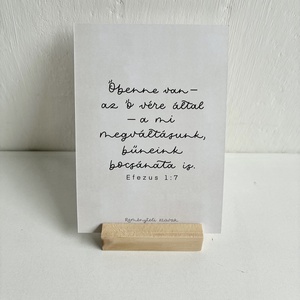 Őbenne van –
az Ő vére által
– a mi
megváltásunk,
bűneink
bocsánata is.
Efezus 1:7